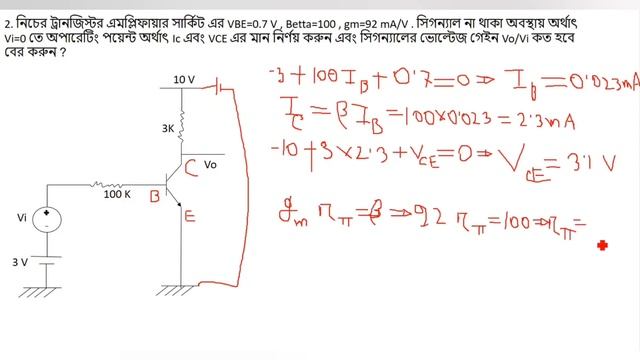 2. নিচের ট্রানজিস্টর এমপ্লিফায়ার সার্কিট এর VBE=0.7 V , Betta=100 , gm=92 mA/V . সিগন্যাল না থাকা অবস্থায় অর্থাৎ
Vi=0 তে অপারেটিং পয়েন্ট অর্থাৎ Ic এবং VCE এর মান নির্ণয় করুন এবং সিগন্যালের ভোল্টেজ গেইন Vo/Vi কত হবে
বের করুন ?
10 V
3K
C
Vo
B
100 K
E
Vi
+
-
3 V
-3+100I_B+0.7=0⇒ I_B=0.023mA
I_C=βI_B=100×0.023=2.3mA
-10+3×2.3+V_CE=0⇒V_CE=3.1 V
g_m r_π=β⇒92 r_π=100⇒r_π=